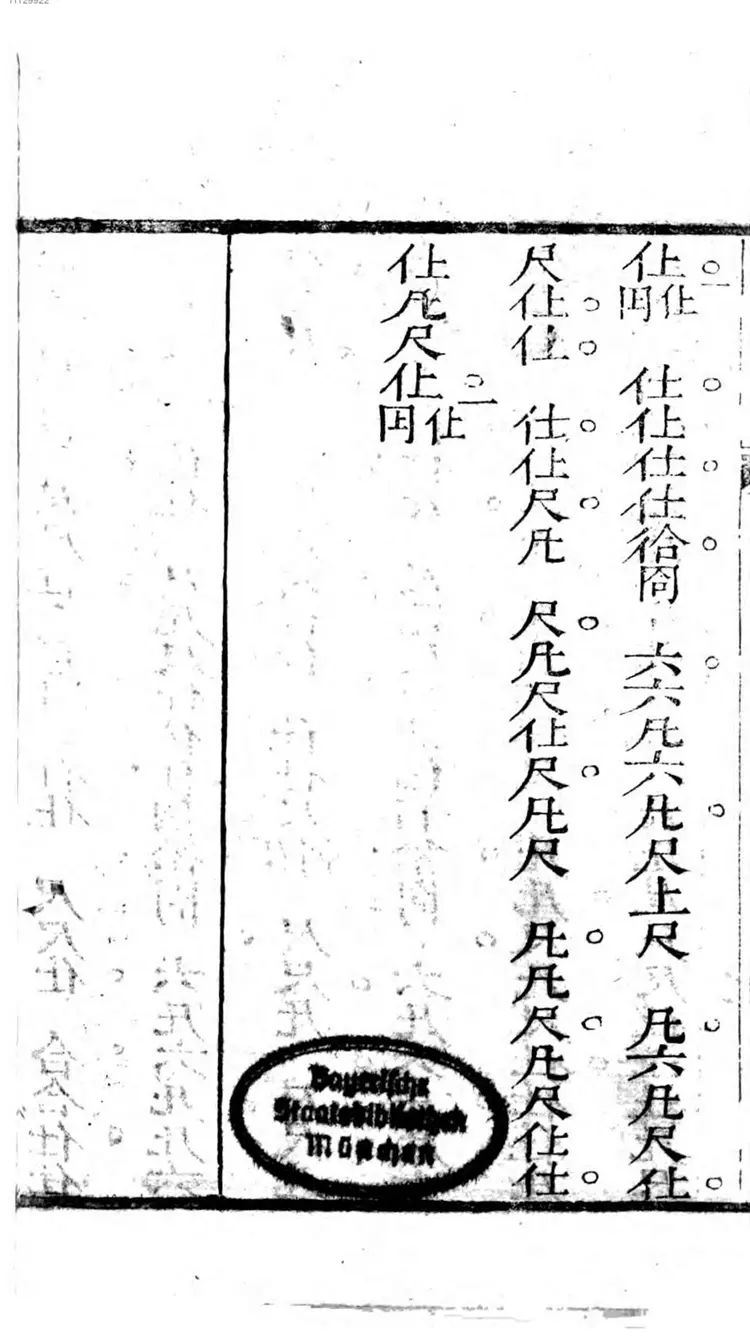 仩仩仕仩仕仕㣛同六六凡六凡尺上尺凡六凡尺仩
尺仩仕仕仩尺凡尺凡尺仩尺凡尺凡凡尺凡尺仩仕
仩凡尺仩仩
Bayerische
Staatsbibliothek
München